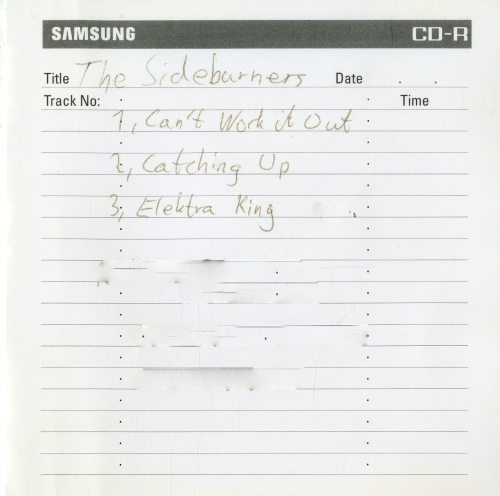 SAMSUNG CD-R
Title The Sideburners Date . .
Track No: Time
1, Can't Work it Out
2, Catching Up
3, Elektra King